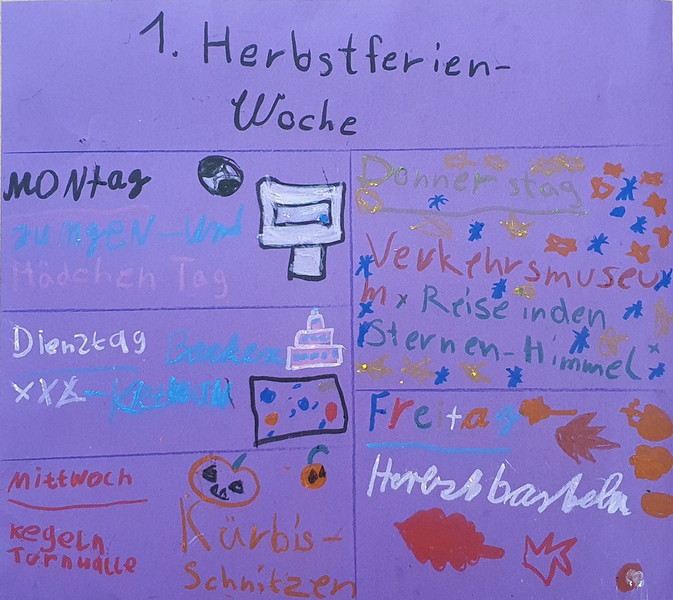 1. Herbstferien-
Woche
MONtag
Jungen-Und
Mädchen Tag
Dienztag Backen
XXL-
Mittwoch
Kegeln
Turnhalle
Kürbis-
Schnitzen
Donnerstag
Verkehrsmuseu
m x Reise in den
Sternen-Himmel
Freitag
Herbstbasteln